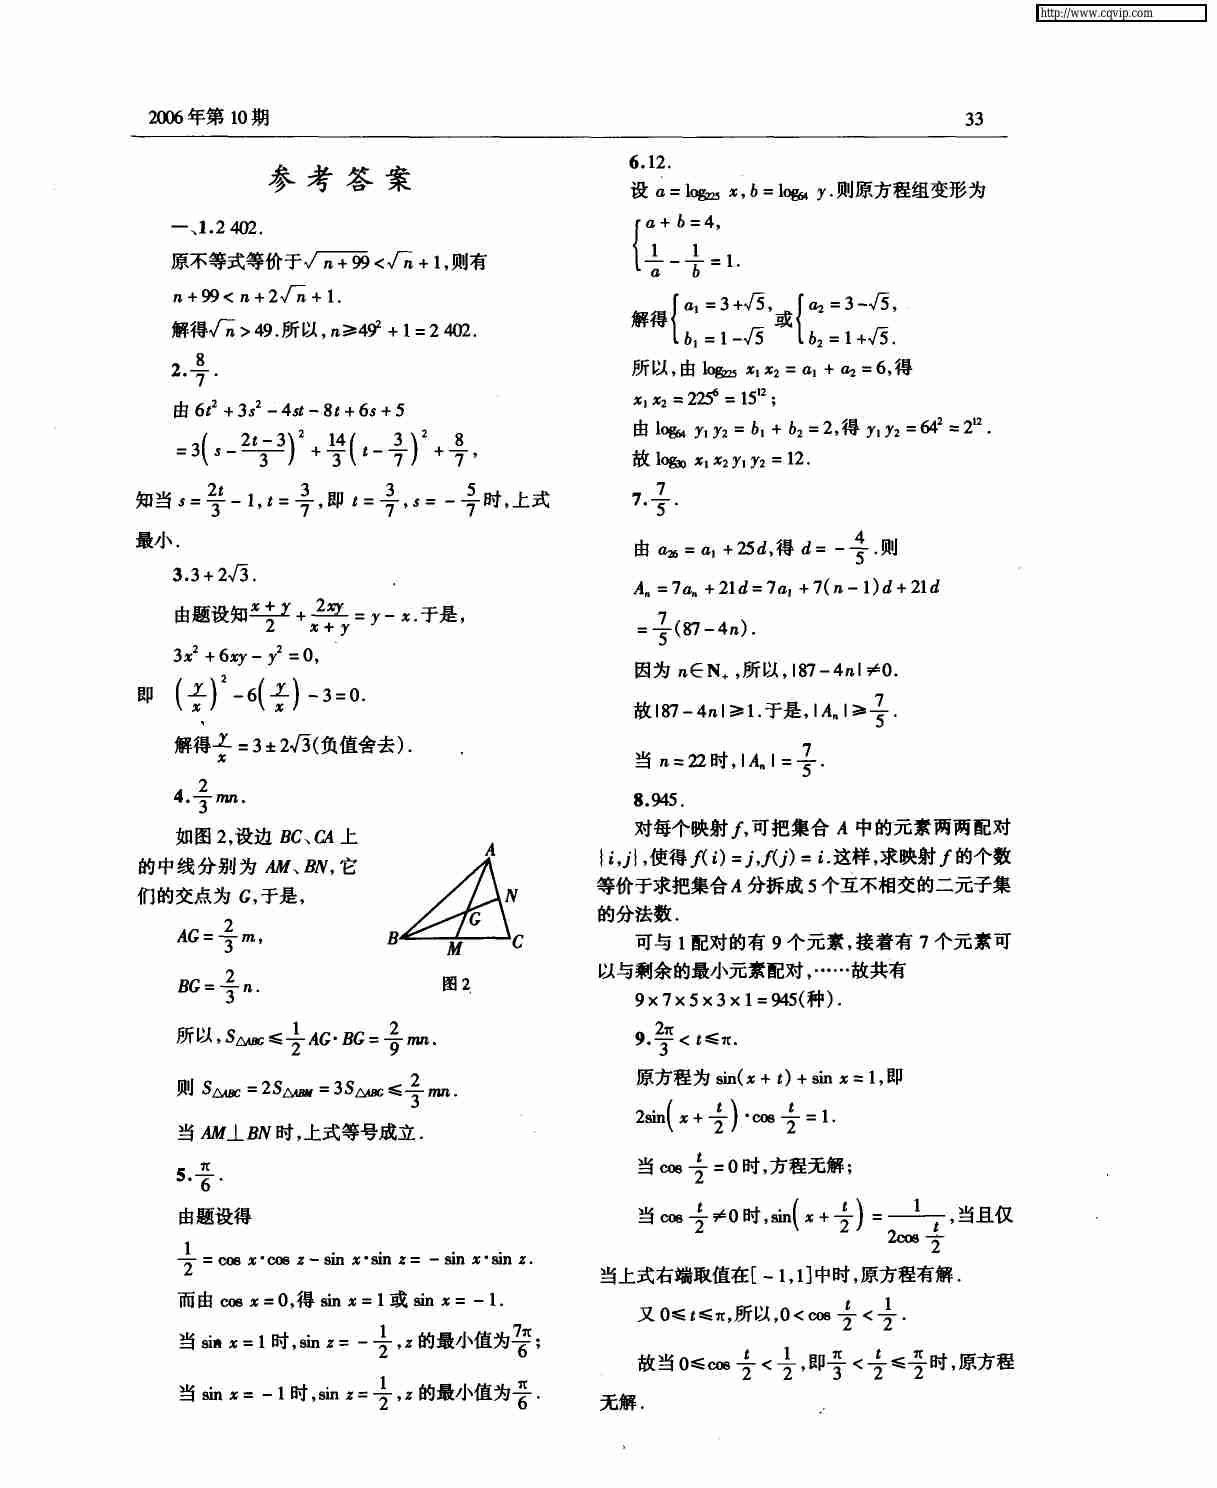 http://www.cqvip.com
2006 年第 10 期
33
参考答案
一、1.2 402.
原不等式等价于√(n+99)<√n+1,则有
n+99<n+2√n+1.
解得√n>49.所以,n≥49²+1=2 402.
2.8/7.
由 6t²+3s²-4st-8t+6s+5
=3(s-(2t-3)/3)²+14/3(t-3/7)²+8/7,
知当 s=2t/3-1,t=3/7,即 t=3/7,s=-5/7时,上式
最小.
3.3+2√3.
由题设知(x+y)/2+2xy/(x+y)=y-x.于是,
3x²+6xy-y²=0,
即 (y/x)²-6(y/x)-3=0.
解得y/x=3±2√3(负值舍去).
4.2/3 mn.
如图 2,设边 BC、CA 上
的中线分别为 AM、BN,它
们的交点为 G,于是,
AG=2/3 m,
BG=2/3 n.
A
N
G
B
M
C
图 2
所以,S△ABG≤1/2 AG·BG=2/9 mn.
则 S△ABC=2S△ABM=3S△ABG≤2/3 mn.
当 AM⊥BN 时,上式等号成立.
5.π/6.
由题设得
1/2=cos x·cos z-sin x·sin z=-sin x·sin z.
而由 cos x=0,得 sin x=1 或 sin x=-1.
当 sin x=1 时,sin z=-1/2,z 的最小值为7π/6;
当 sin x=-1 时,sin z=1/2,z 的最小值为π/6.
6.12.
设 a=log₂₂₅ x,b=log₆₄ y.则原方程组变形为
{a+b=4,
1/a-1/b=1.
解得{a₁=3+√5, b₁=1-√5 或{a₂=3-√5, b₂=1+√5.
所以,由 log₂₂₅ x₁x₂=a₁+a₂=6,得
x₁x₂=225⁶=15¹²;
由 log₆₄ y₁y₂=b₁+b₂=2,得 y₁y₂=64²=2¹².
故 log₃₀ x₁x₂y₁y₂=12.
7.7/5.
由 a₂₆=a₁+25d,得 d=-4/5.则
Aₙ=7aₙ+21d=7a₁+7(n-1)d+21d
=7/5(87-4n).
因为 n∈N₊,所以,|87-4n|≠0.
故|87-4n|≥1.于是,|Aₙ|≥7/5.
当 n=22时,|Aₙ|=7/5.
8.945.
对每个映射 f,可把集合 A 中的元素两两配对
{i,j},使得 f(i)=j,f(j)=i.这样,求映射 f 的个数
等价于求把集合 A 分拆成 5 个互不相交的二元子集
的分法数.
可与 1 配对的有 9 个元素,接着有 7 个元素可
以与剩余的最小元素配对,……故共有
9×7×5×3×1=945(种).
9.2π/3<t≤π.
原方程为 sin(x+t)+sin x=1,即
2sin(x+t/2)·cos t/2=1.
当 cos t/2=0 时,方程无解;
当 cos t/2≠0 时,sin(x+t/2)=1/(2cos t/2),当且仅
当上式右端取值在[-1,1]中时,原方程有解.
又 0≤t≤π,所以,0<cos t/2<1/2.
故当 0≤cos t/2<1/2,即π/3<t/2≤π/2时,原方程
无解.